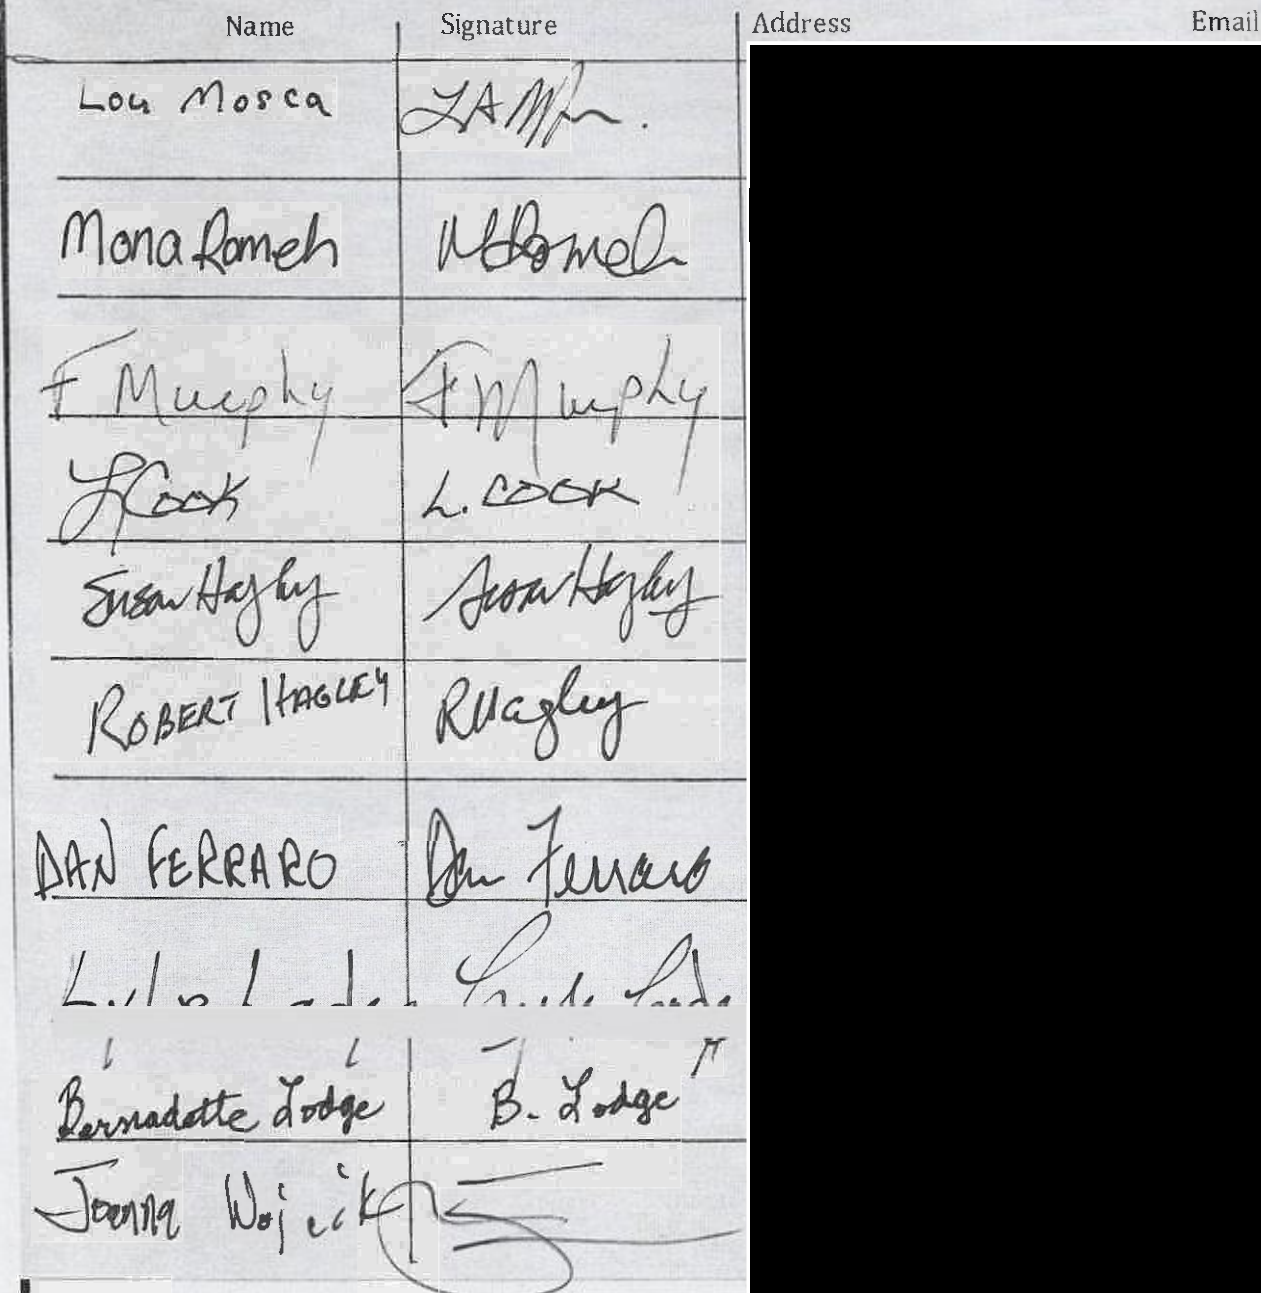 Name Signature Address Email
Lou Mosca
Mona Romeh MRomeh
F Murphy F Murphy
L Cook L. COOK
Susan Hagley Susan Hagley
ROBERT HAGLEY RHagley
DAN FERRARO Dan Ferraro
Bernadette Lodge B. Lodge
Joanna Wojcik